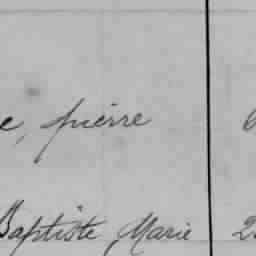 e, pierre
Baptiste Marie 2